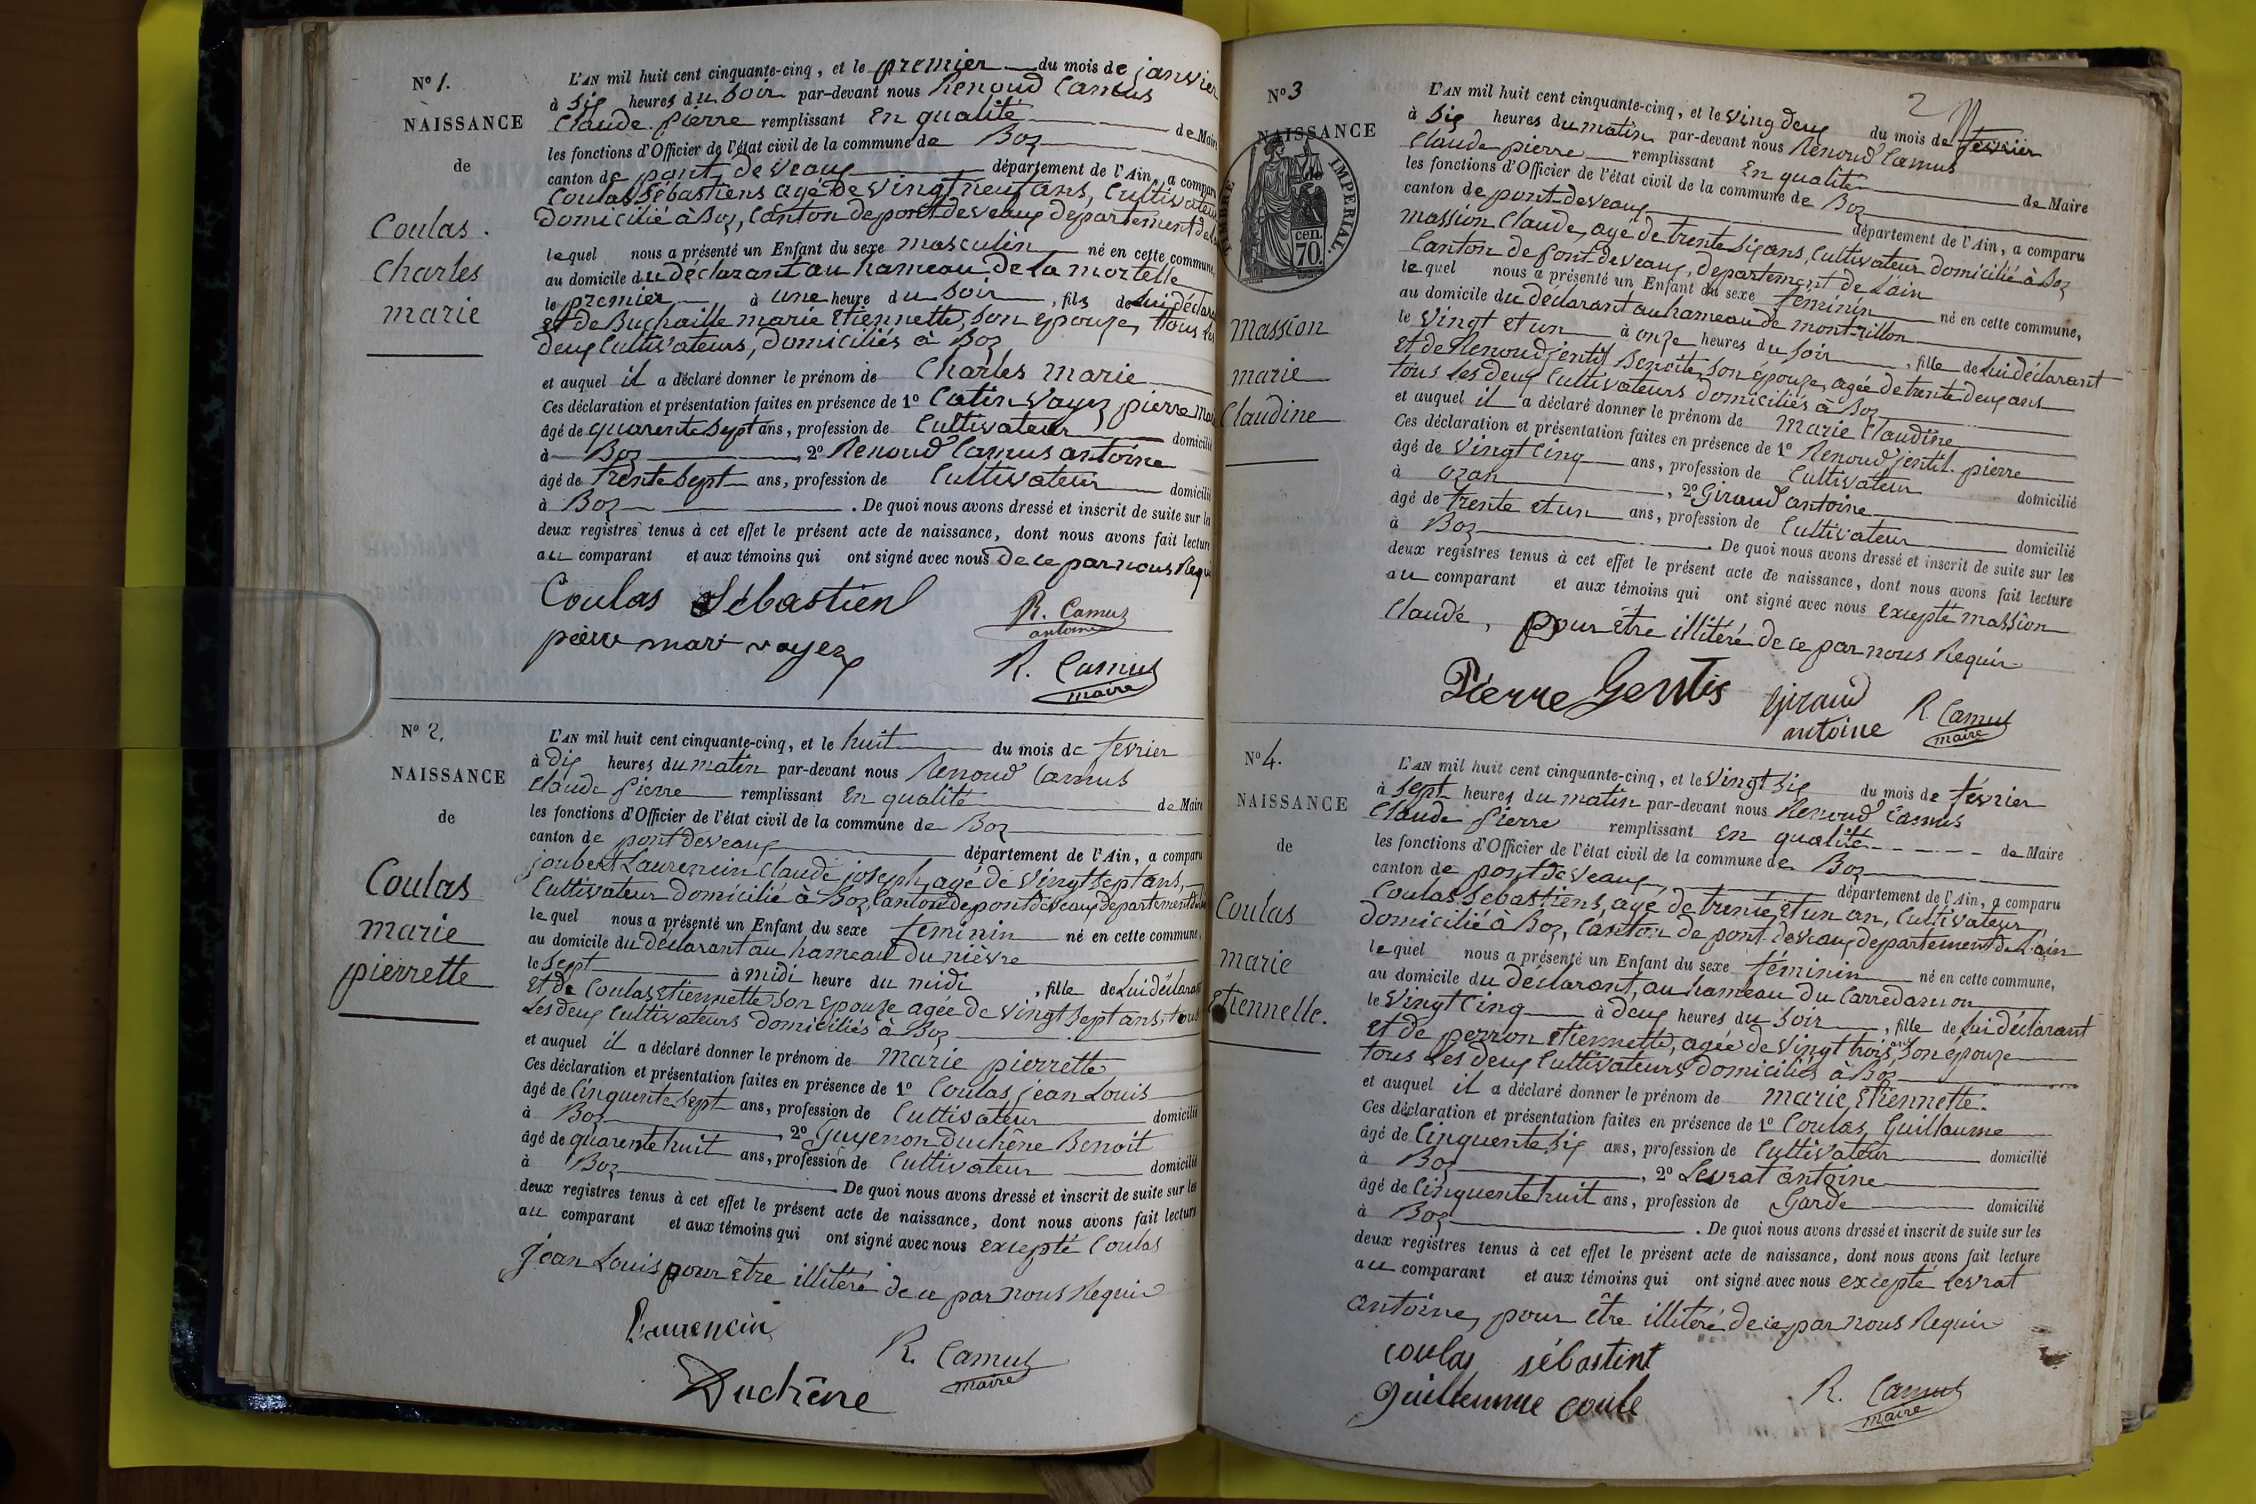 N° 1.
NAISSANCE
de
Coulas.
Charles
marie
L'AN mil huit cent cinquante-cinq, et le premier du mois de janvier
à Six heures du Soir par-devant nous Renoud Camus
Claude Pierre remplissant En qualité de Maire
les fonctions d'Officier de l'état civil de la commune de Boz
canton de pont de veaux département de l'Ain, a comparu
Coulas Sébastiens agé de vingt neuf ans, Cultivateur
domicilié à Boz, Canton de pont de veaux departement de
le quel nous a présenté un Enfant du sexe masculin né en cette commune,
au domicile du déclarant au hameau de la mortelle
le premier à une heure du Soir, fils de lui déclarant
et de Buchaille marie Etiennette, son epouze, tous les
deux Cultivateurs, domiciliés à Boz
et auquel il a déclaré donner le prénom de Charles marie
Ces déclaration et présentation faites en présence de 1° Catin Vayez pierre
âgé de quarente Sept ans, profession de Cultivateur domicilié
à Boz, 2° Renoud Camus antoine
âgé de trente Sept ans, profession de Cultivateur domicilié
à Boz. De quoi nous avons dressé et inscrit de suite sur les
deux registres tenus à cet effet le présent acte de naissance, dont nous avons fait lecture
au comparant et aux témoins qui ont signé avec nous de ce par nous Requi
Coulas Sébastien
R. Camus
antoine
pierre mari vayez
R. Camus
maire
N° 2.
NAISSANCE
de
Coulas
marie
pierrette
L'AN mil huit cent cinquante-cinq, et le huit du mois de février
à dix heures du matin par-devant nous Renoud Camus
Claude Pierre remplissant En qualité de Maire
les fonctions d'Officier de l'état civil de la commune de Boz
canton de pont de veaux département de l'Ain, a comparu
joubert Laurencin Claude joseph, agé de vingt Sept ans,
Cultivateur domicilié à Boz, Canton de pont de veaux departement
le quel nous a présenté un Enfant du sexe feminin né en cette commune,
au domicile du déclarant au hameau du nièvre
le Sept à midi heure du midi, fille de lui déclarant
et de Coulas Etiennette son epouze agée de vingt Sept ans, tous
Les deux Cultivateurs domiciliés à Boz
et auquel il a déclaré donner le prénom de marie pierrette
Ces déclaration et présentation faites en présence de 1° Coulas, jean Louis
âgé de Cinquente Sept ans, profession de Cultivateur domicilié
à Boz, 2° Guyenon duchêne Benoit
âgé de quarente huit ans, profession de Cultivateur domicilié
à Boz. De quoi nous avons dressé et inscrit de suite sur les
deux registres tenus à cet effet le présent acte de naissance, dont nous avons fait lecture
au comparant et aux témoins qui ont signé avec nous excepté Coulas
jean Louis pour être illitéré de ce par nous Requis
Laurencin
R. Camus
maire
Duchêne
2
N° 3
NAISSANCE
TIMBRE IMPERIAL.
cen.
70.
Massion
marie
Claudine
L'AN mil huit cent cinquante-cinq, et le ving deux du mois de février
à Six heures du matin par-devant nous Renoud Camus
Claude pierre remplissant En qualité de Maire
les fonctions d'Officier de l'état civil de la commune de Boz
canton de pont de veaux département de l'Ain, a comparu
massion Claude, agé de trente Six ans, Cultivateur domicilié à Boz
Canton de Pont de veaux, departement de Lain
le quel nous a présenté un Enfant du sexe feminin né en cette commune,
au domicile du déclarant au hameau de mont-rillon
le Vingt et un à onze heures du Soir, fille de lui déclarant
et de Renoud jentil Benoite, Son épouze, agée de trente deux ans
tous les deux Cultivateurs domiciliés à Boz
et auquel il a déclaré donner le prénom de Marie Claudine
Ces déclaration et présentation faites en présence de 1° Renoud jentil pierre
âgé de Vingt Cinq ans, profession de Cultivateur domicilié
à ozan, 2° Giraud antoine
âgé de trente et un ans, profession de Cultivateur domicilié
à Boz. De quoi nous avons dressé et inscrit de suite sur les
deux registres tenus à cet effet le présent acte de naissance, dont nous avons fait lecture
au comparant et aux témoins qui ont signé avec nous excepté massion
Claude, pour être illitéré de ce par nous Requis
Pierre Gentis
Giraud
antoine
R. Camus
maire
N° 4.
NAISSANCE
de
Coulas
marie
Etiennette.
L'AN mil huit cent cinquante-cinq, et le Vingt Six du mois de février
à Sept heures du matin par-devant nous Renoud Camus
Claude Pierre remplissant En qualité de Maire
les fonctions d'Officier de l'état civil de la commune de Boz
canton de pont de veaux, département de l'Ain, a comparu
Coulas Sébastiens, agé de trente et un an, Cultivateur,
domicilié à Boz, Canton de pont de veaux departement de L'ain
le quel nous a présenté un Enfant du sexe féminin né en cette commune,
au domicile du déclarant, au hameau du Carredamon
le Vingt Cinq à deux heures du Soir, fille de lui déclarant
Et de perron Etiennette, agée de Vingt trois ans Son épouze
tous Les deux Cultivateurs domiciliés à Boz
et auquel il a déclaré donner le prénom de marie Etiennette.
Ces déclaration et présentation faites en présence de 1° Coulas Guillaume
âgé de Cinquente Six ans, profession de Cultivateur domicilié
à Boz, 2° Levrat antoine
âgé de Cinquente huit ans, profession de Garde domicilié
à Boz. De quoi nous avons dressé et inscrit de suite sur les
deux registres tenus à cet effet le présent acte de naissance, dont nous avons fait lecture
au comparant et aux témoins qui ont signé avec nous excepté Levrat
antoine, pour être illitéré de ce par nous Requis
coulas sébastint
guilleumue coule
R. Camus
maire